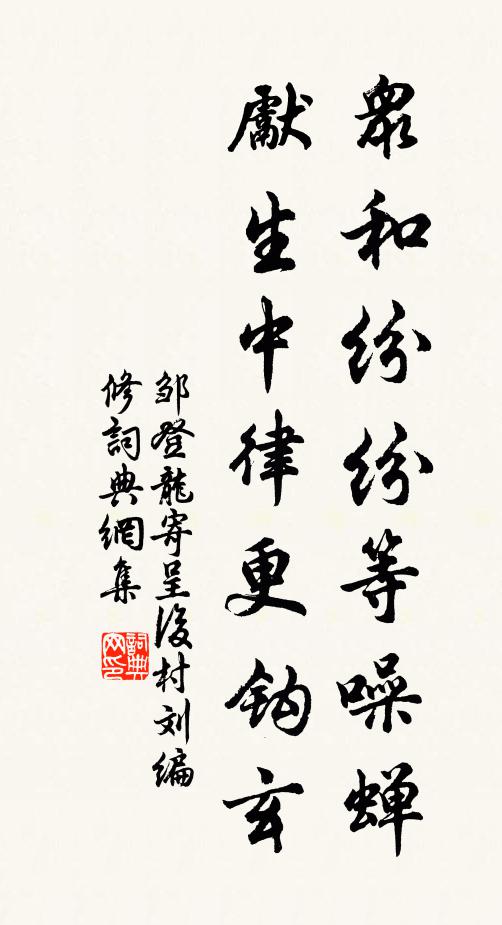 眾和紛紛等噪蝉
獻生中律更鈎玄
邹登龍寄呈後村刘编
修詞典網集
詞典网印